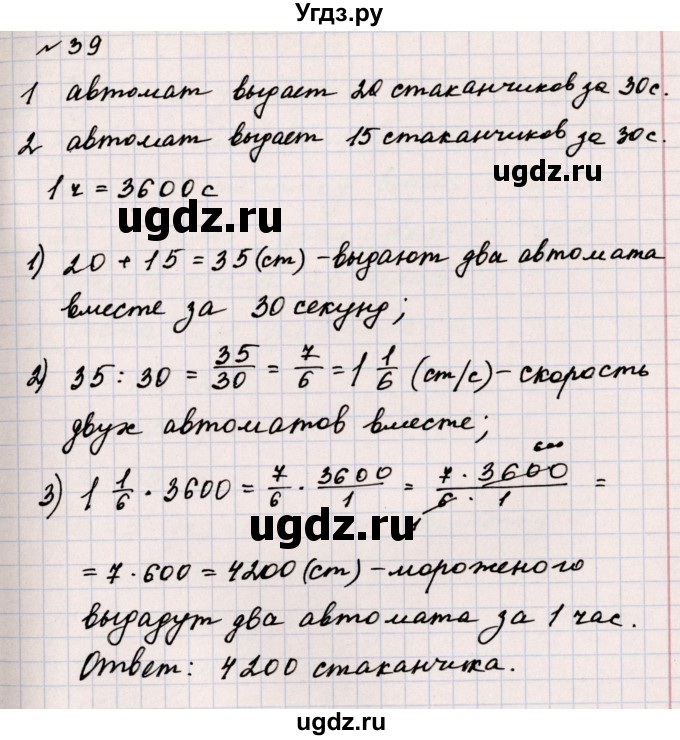 Угдз.ру
№ 39
1 автомат выдает 20 стаканчиков за 30с.
2 автомат выдает 15 стаканчиков за 30с.
ugdz.ru
1 ч = 3600 с
ugdz.ru
1) 20 + 15 = 35 (ст) - выдают два автомата
вместе за 30 секунд;
2) 35 : 30 = 35/30 = 7/6 = 1 1/6 (ст/с) - скорость
двух автоматов вместе;
600
3) 1 1/6 · 3600 = 7/6 · 3600/1 = 7 · 3600/6 · 1 =
1
ugdz.ru
= 7 · 600 = 4200 (ст) - мороженого
выдадут два автомата за 1 час.
Ответ: 4200 стаканчика.
ugdz.ru